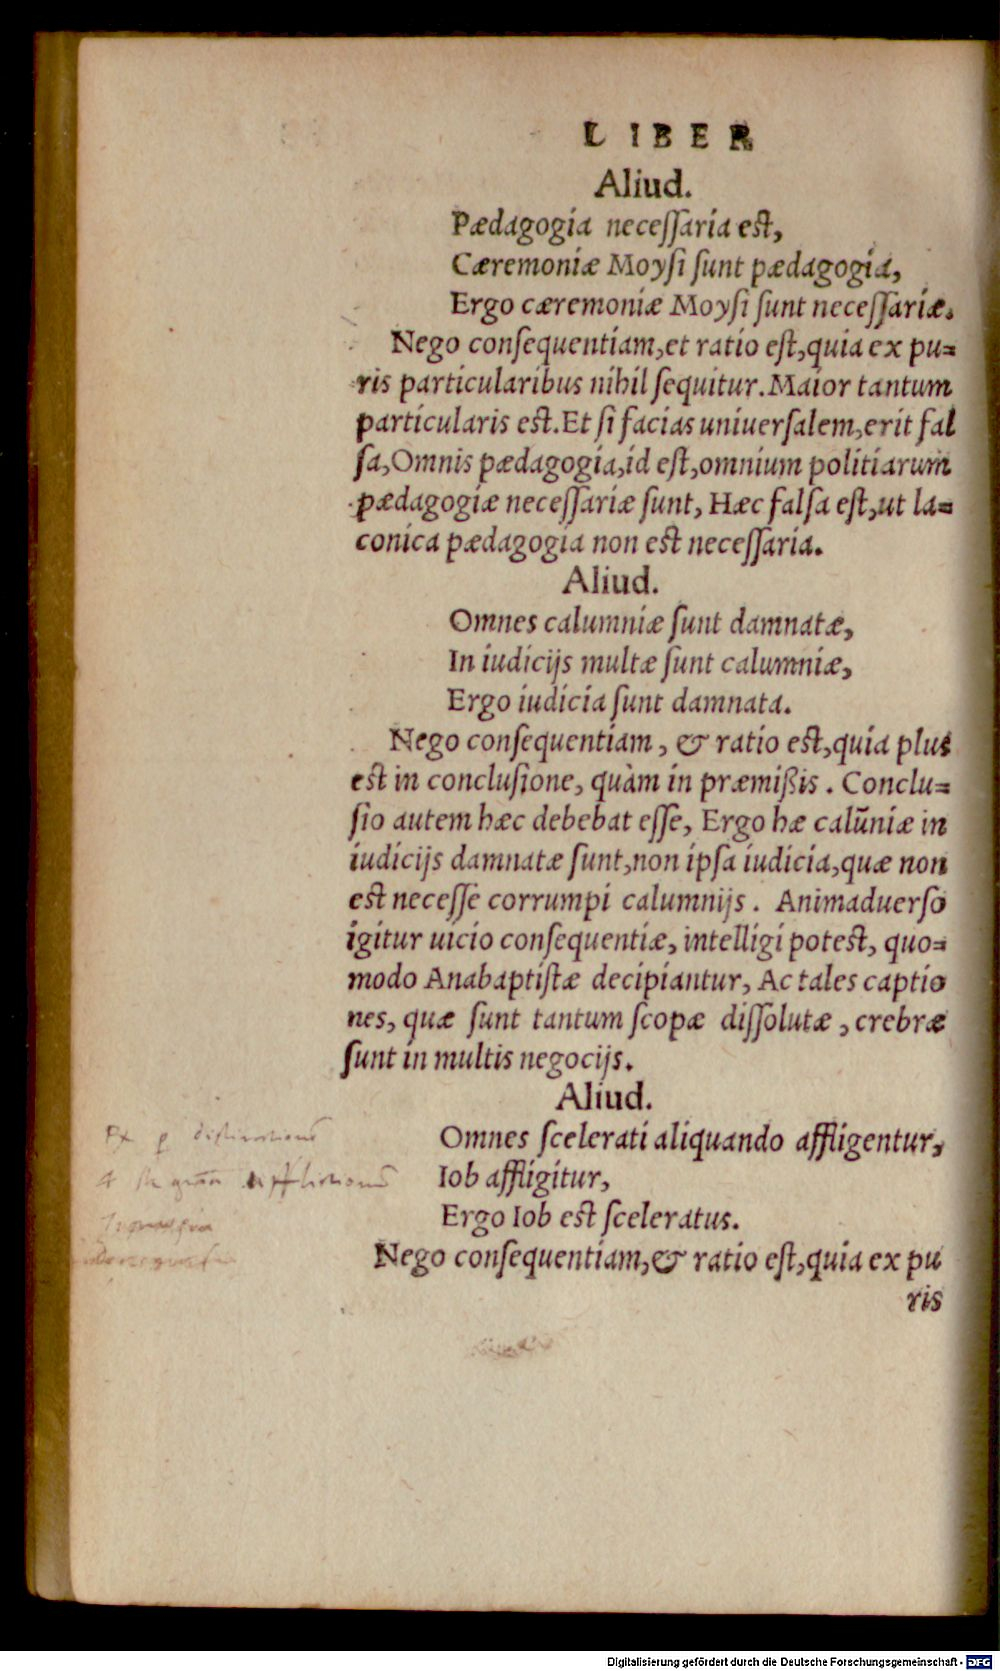 LIBER
Aliud.
Pædagogia necessaria est,
Cæremoniæ Moysi sunt pædagogia,
Ergo cæremoniæ Moysi sunt necessariæ.
Nego consequentiam, et ratio est, quia ex pu=
ris particularibus nihil sequitur. Maior tantum
particularis est. Et si facias uniuersalem, erit fal
sa, Omnis pædagogia, id est, omnium politiarum
pædagogiæ necessariæ sunt, Hæc falsa est, ut la=
conica pædagogia non est necessaria.
Aliud.
Omnes calumniæ sunt damnatæ,
In iudicijs multæ sunt calumniæ,
Ergo iudicia sunt damnata.
Nego consequentiam, & ratio est, quia plus
est in conclusione, quàm in præmißis. Conclu=
sio autem hæc debebat esse, Ergo hæ calũniæ in
iudicijs damnatæ sunt, non ipsa iudicia, quæ non
est necesse corrumpi calumnijs. Animaduerso
igitur uicio consequentiæ, intelligi potest, quo=
modo Anabaptistæ decipiantur, Ac tales captio
nes, quæ sunt tantum scopæ dissolutæ, crebræ
sunt in multis negocijs.
Aliud.
Omnes scelerati aliquando affligentur,
Iob affligitur,
Ergo Iob est sceleratus.
Nego consequentiam, & ratio est, quia ex pu
ris
Digitalisierung gefördert durch die Deutsche Forschungsgemeinschaft - DFG